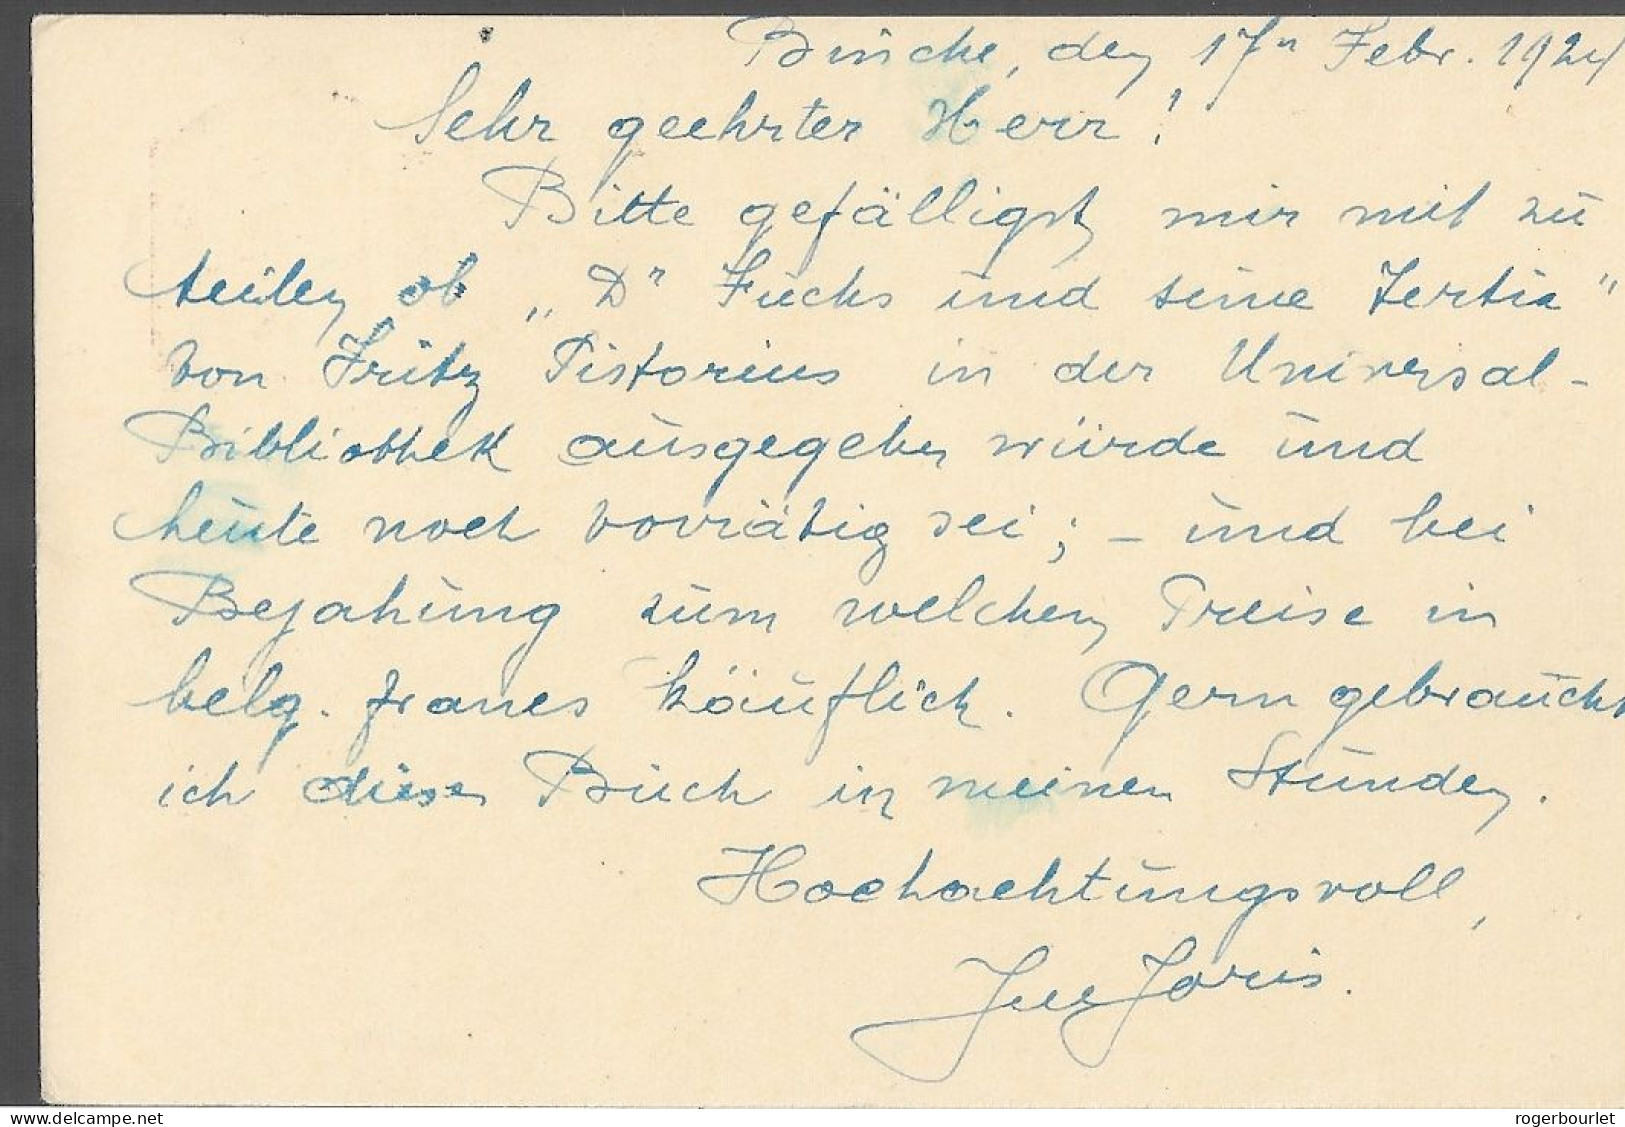 Binche, den 17n Febr. 1924
Sehr geehrter Herr!
Bitte gefälligst mir mit zu
teilen ob „Dr Fuchs und seine Tertia“
von Fritz Pistorius in der Universal-
Bibliothek ausgegeben würde und
heute noch vorrätig sei; – und bei
Bejahung zum welchen Preise in
belg. francs käuflich. Gern gebrauche
ich dieses Buch in meinen Stunden.
Hochachtungsvoll,
Joris.
https://www.delcampe.net
rogerbourlet